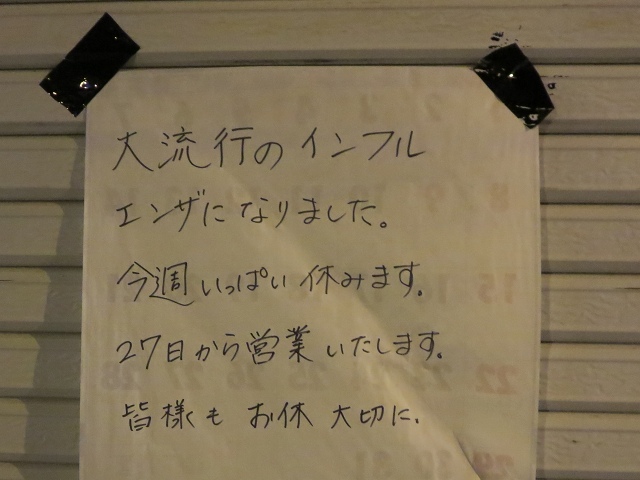 大流行のインフル
エンザになりました。
今週いっぱい休みます。
27日から営業いたします。
皆様もお休大切に.